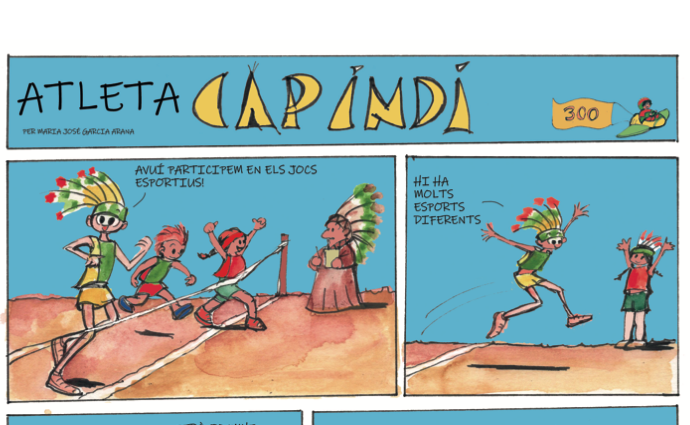 ATLETA CAP INDI
300
PER MARIA JOSE GARCIA ARANA
AVUÍ PARTICIPEM EN ELS JOCS
ESPORTIUS!
HI HA
MOLTS
ESPORTS
DIFERENTS